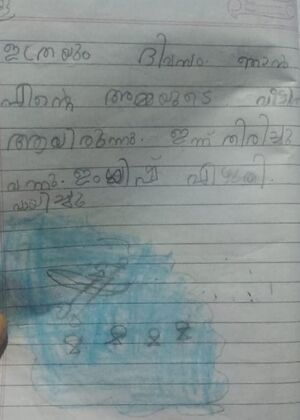 ഇത്രയും ദിവസം ഞാൻ
എന്റെ അമ്മയുടെ വീട്ടി
ആയിരുന്നു. ഇന്ന് തിരിച്ചു
വന്നു. ഇംഗ്ലീഷ് എഴുതി.
വായിച്ചു